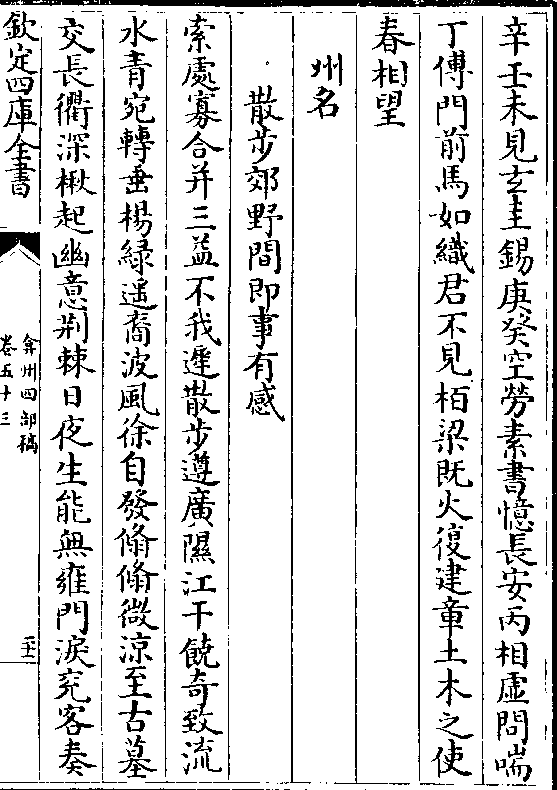 辛壬未見玄圭錫庚癸空勞素書憶長安丙相虛問喘
丁傅門前馬如織君不見栢梁既火復建章土木之使
春相望
州名
散步郊野間即事有感
索處寡合并三益不我遲散步遵廣隰江干饒奇致流
水青宛轉垂楊緑遥裔波風徐自發翛翛微涼至古墓
交長衢深楸起幽意荆棘日夜生能無雍門淚兖客奏
欽定四庫全書
弇州四部稿
卷五十三
二十一